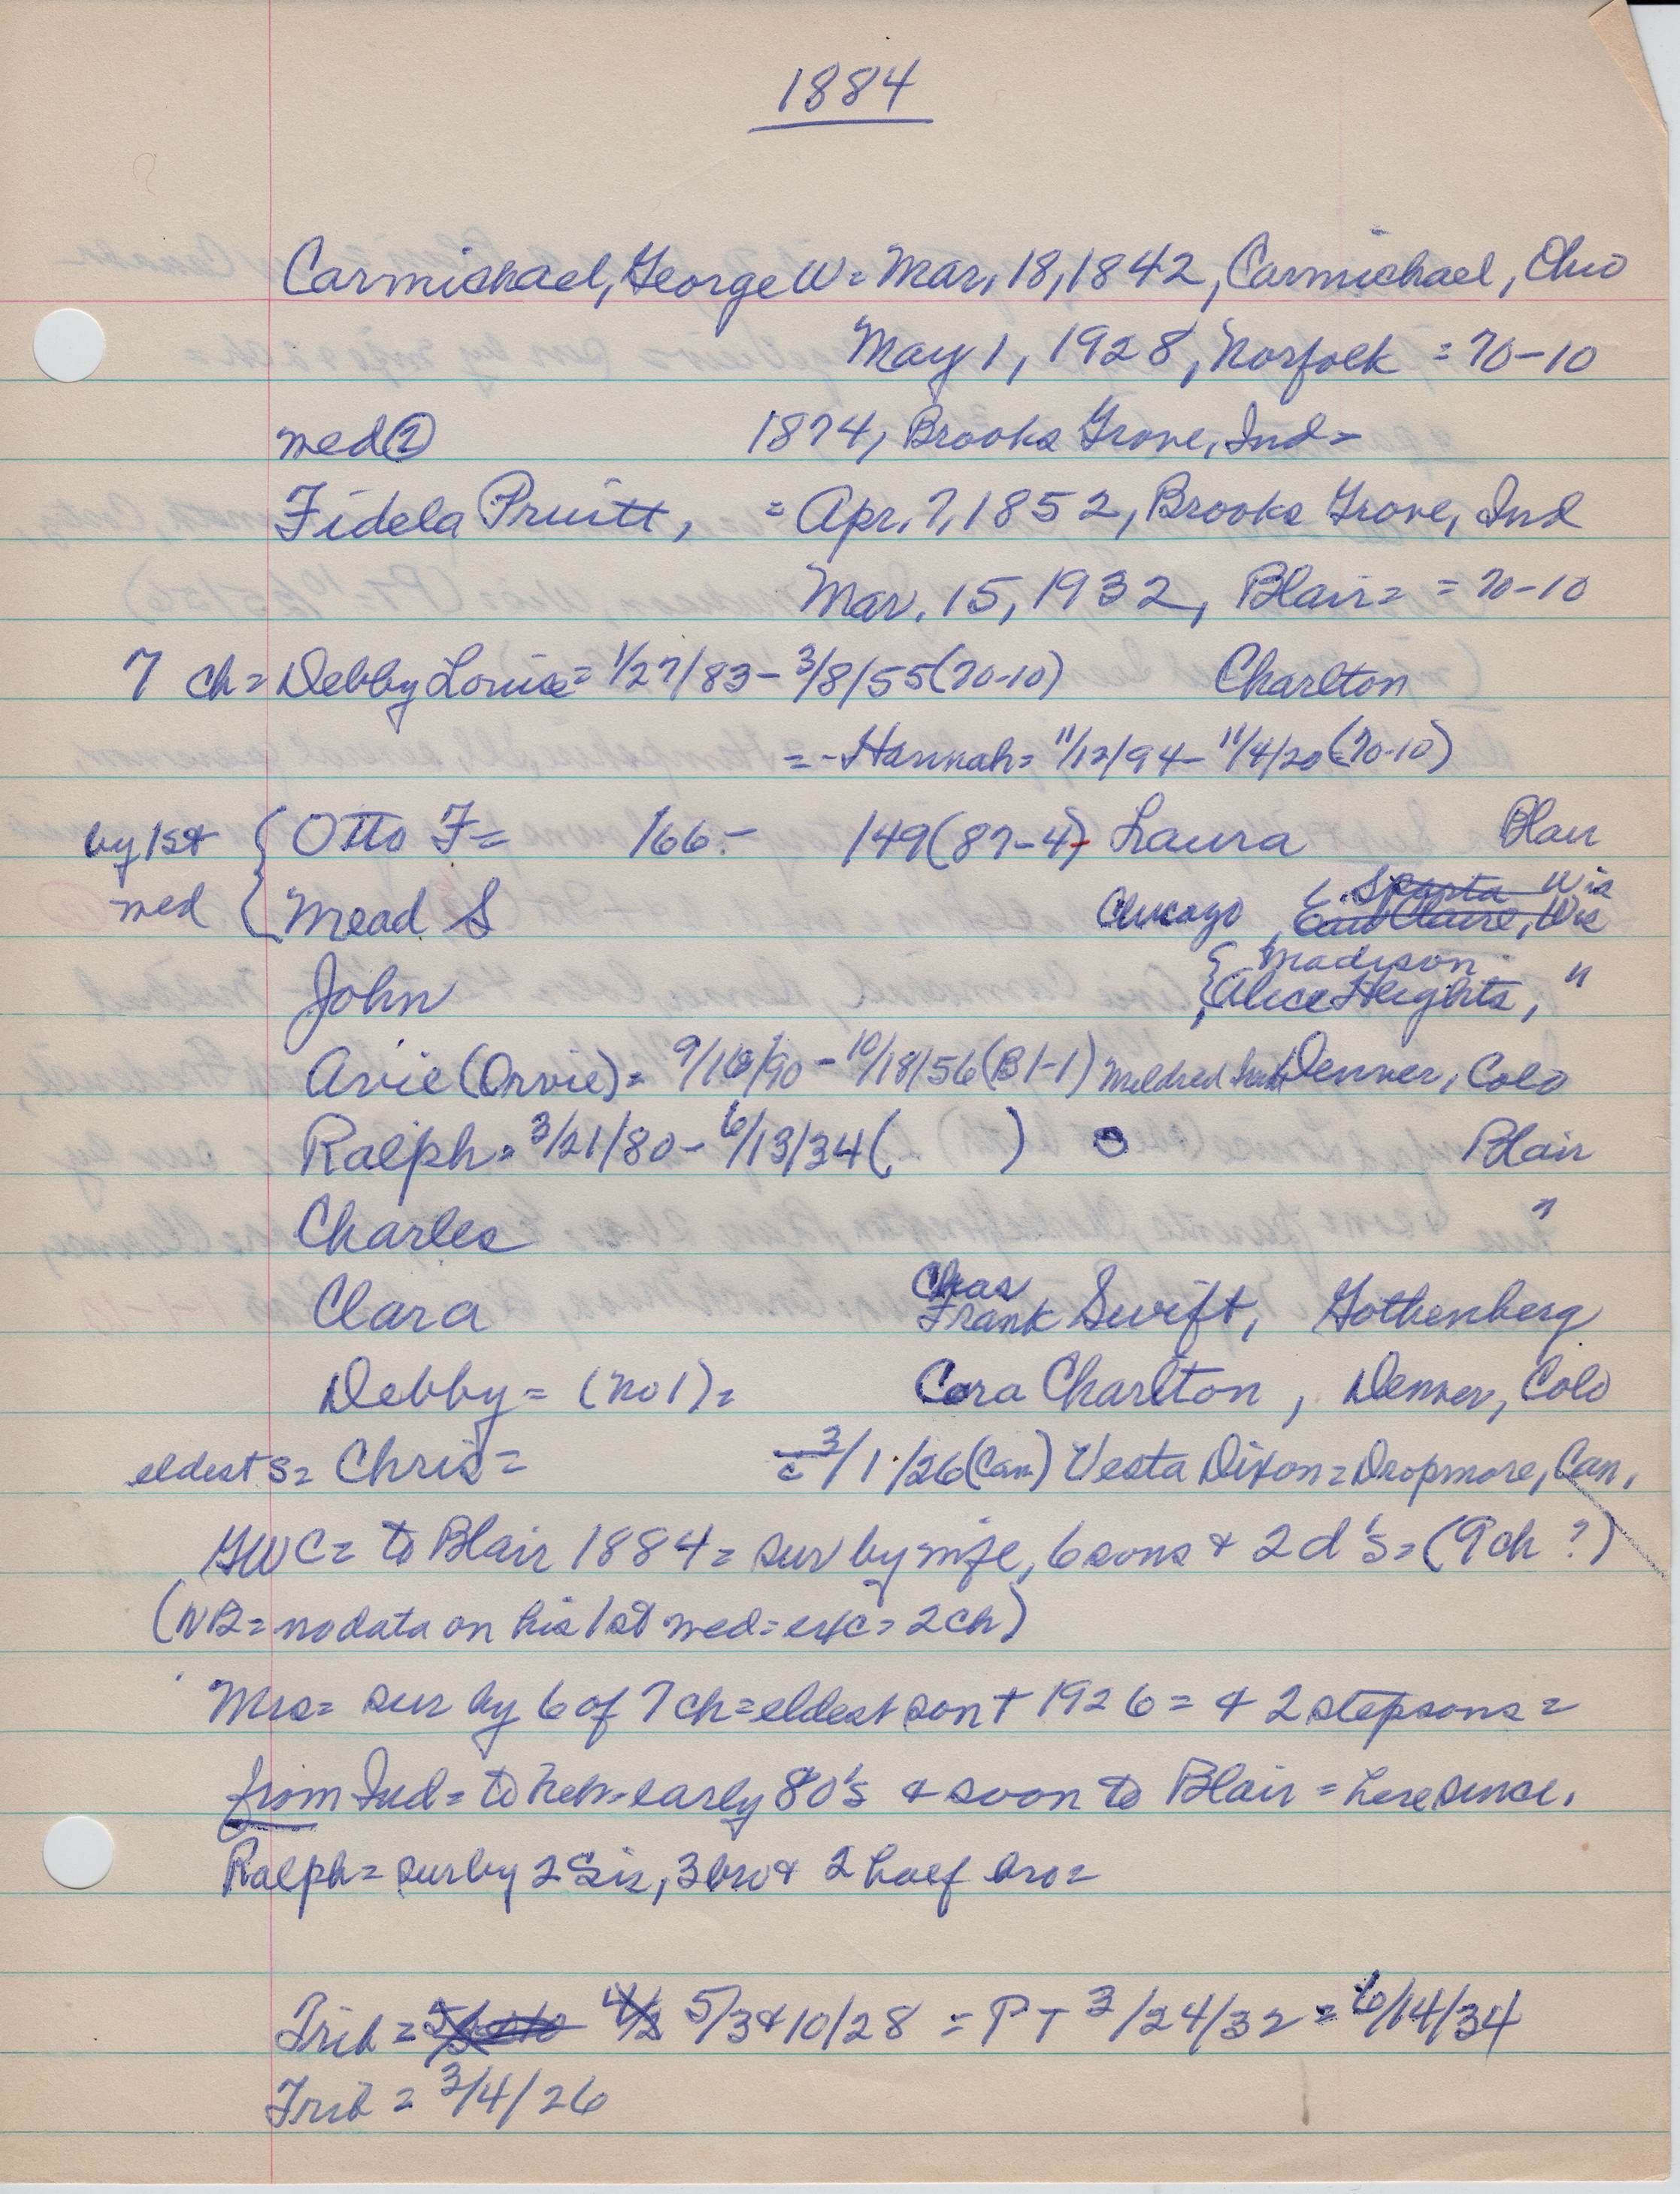 1884
Carmichael, George W = Mar, 18, 1842, Carmichael, Ohio
May 1, 1928, Norfolk = 70-10
med ② 1874, Brooks Grove, Ind =
Fidela Pruitt, = Apr. 7, 1852, Brooks Grove, Ind
Mar. 15, 1932, Blair = = 70-10
7 ch = Debby Louise = 1/27/83 - 3/8/55 (70-10) Charlton
= - Hannah = 11/12/94 - 11/4/20 (70-10)
by 1st { Otto F = /66 - /49 (87-4) Laura Blair
med { Mead S Chicago, { Sparta Wis
Eau Claire, Wis
John { Madison
Alice Heights, "
Avie (Orvie) = 9/16/90 - 10/18/56 (B1-1) Mildred Denver, Colo
Ralph = 3/21/80 - 6/13/34 ( ) 0 Blair
Charles "
Clara Chas
Frank Swift, Gothenberg
Debby = (no 1) = Cora Charlton, Denver, Colo
eldest s = Chris = c 3/1/26 (Can) Vesta Dixon = Dropmore, Can,
GWC = to Blair 1884 = sur by wife, 6 sons & 2 d's = (9 ch ?)
(NB = no data on his 1st med = exc = 2 ch)
Mrs = sur by 6 of 7 ch = eldest son + 1926 = & 2 stepsons =
from Ind = to Neb - early 80's & soon to Blair = here since.
Ralph = sur by 2 Sis, 3 bro & 2 half bro =
Trib = 5/3 & 10/28 = PT 3/24/32 = 6/14/34
Trib = 3/4/26